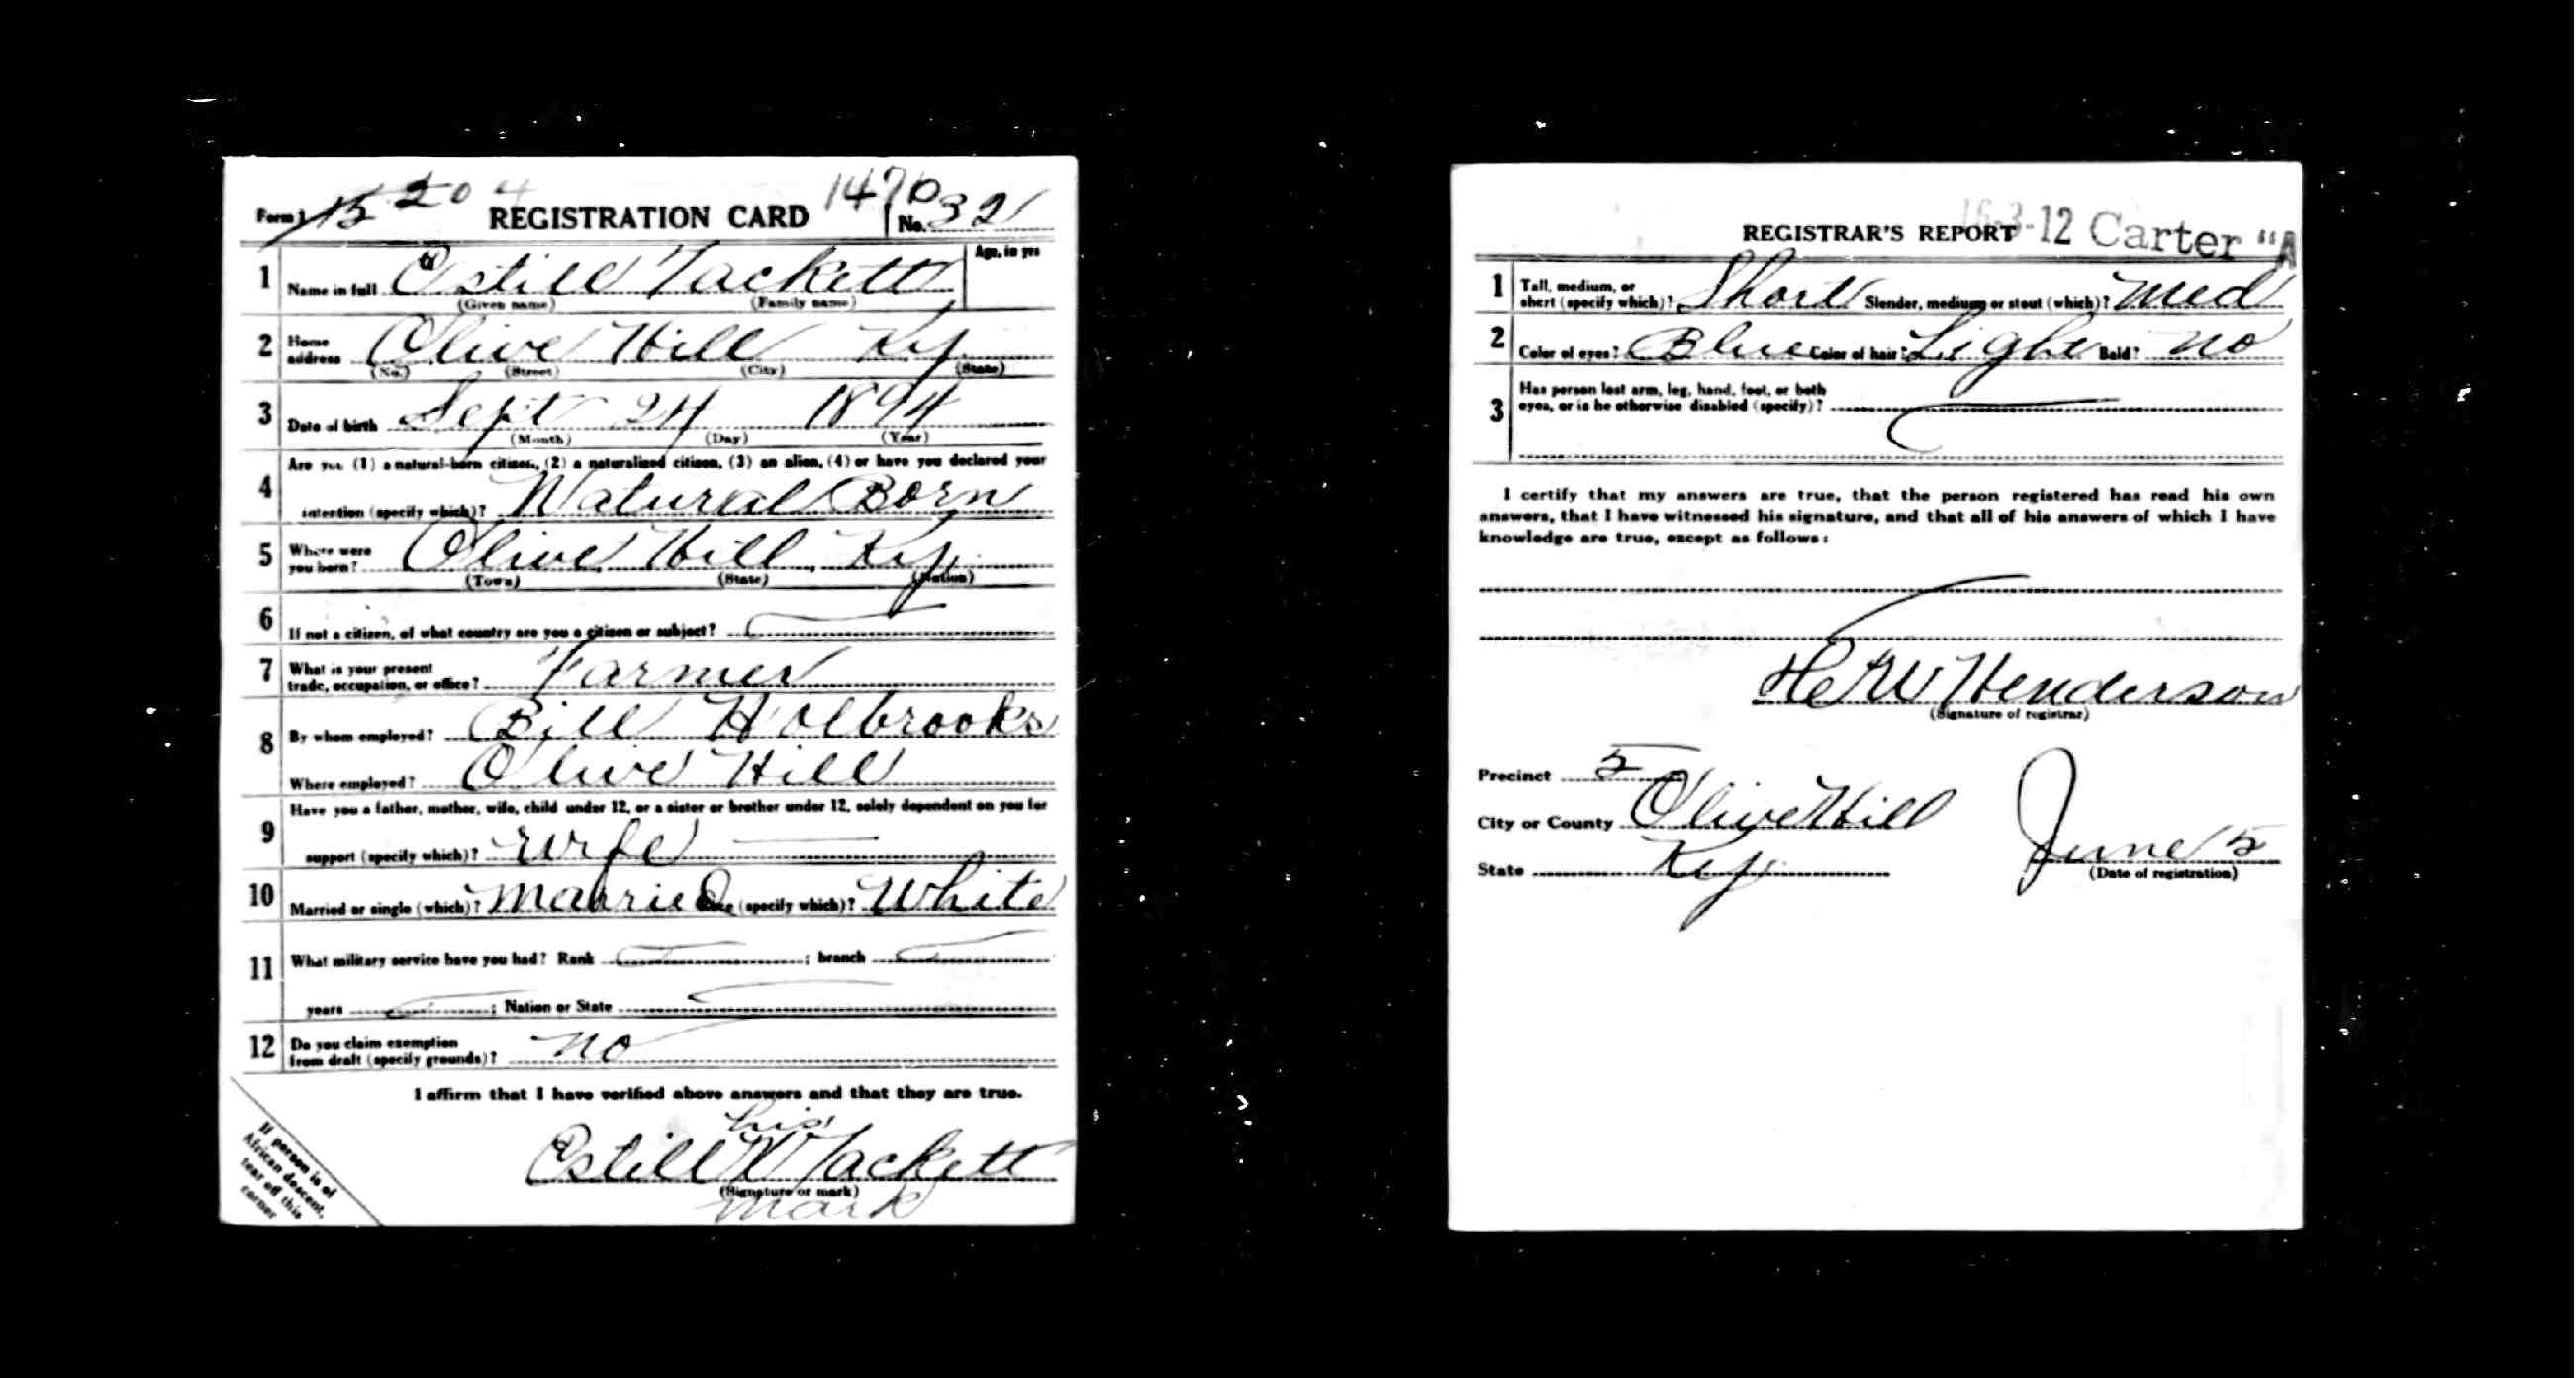 Form 1 15 20 4 REGISTRATION CARD 1470 No. 32
1 Name in full Estill Tackett Age, in yrs
(Given name) (Family name)
2 Home address Olive Hill Ky
(No.) (Street) (City) (State)
3 Date of birth Sept 24 1894
(Month) (Day) (Year)
Are you (1) a natural-born citizen, (2) a naturalized citizen, (3) an alien, (4) or have you declared your
4 intention (specify which)? Natural Born
5 Where were you born? Olive Hill, Ky.
(Town) (State) (Nation)
6 If not a citizen, of what country are you a citizen or subject?
7 What is your present trade, occupation, or office? Farmer
8 By whom employed? Bill Holbrooks
Where employed? Olive Hill
Have you a father, mother, wife, child under 12, or a sister or brother under 12, solely dependent on you for
9 support (specify which)? Wife
10 Married or single (which)? Married Race (specify which)? White
11 What military service have you had? Rank ; branch
years ; Nation or State
12 Do you claim exemption from draft (specify grounds)? no
I affirm that I have verified above answers and that they are true.
his
Estill X Tackett
(Signature or mark)
mark
If person is of
African descent,
tear off this
corner
REGISTRAR'S REPORT 16-3-12 Carter "A
1 Tall, medium, or short (specify which)? Short Slender, medium or stout (which)? Med
2 Color of eyes? Blue Color of hair? Light Bald? no
3 Has person lost arm, leg, hand, foot, or both
eyes, or is he otherwise disabled (specify)?
I certify that my answers are true, that the person registered has read his own
answers, that I have witnessed his signature, and that all of his answers of which I have
knowledge are true, except as follows:
Henderson
(Signature of registrar)
Precinct 5
City or County Olive Hill
State Ky. June 5
(Date of registration)